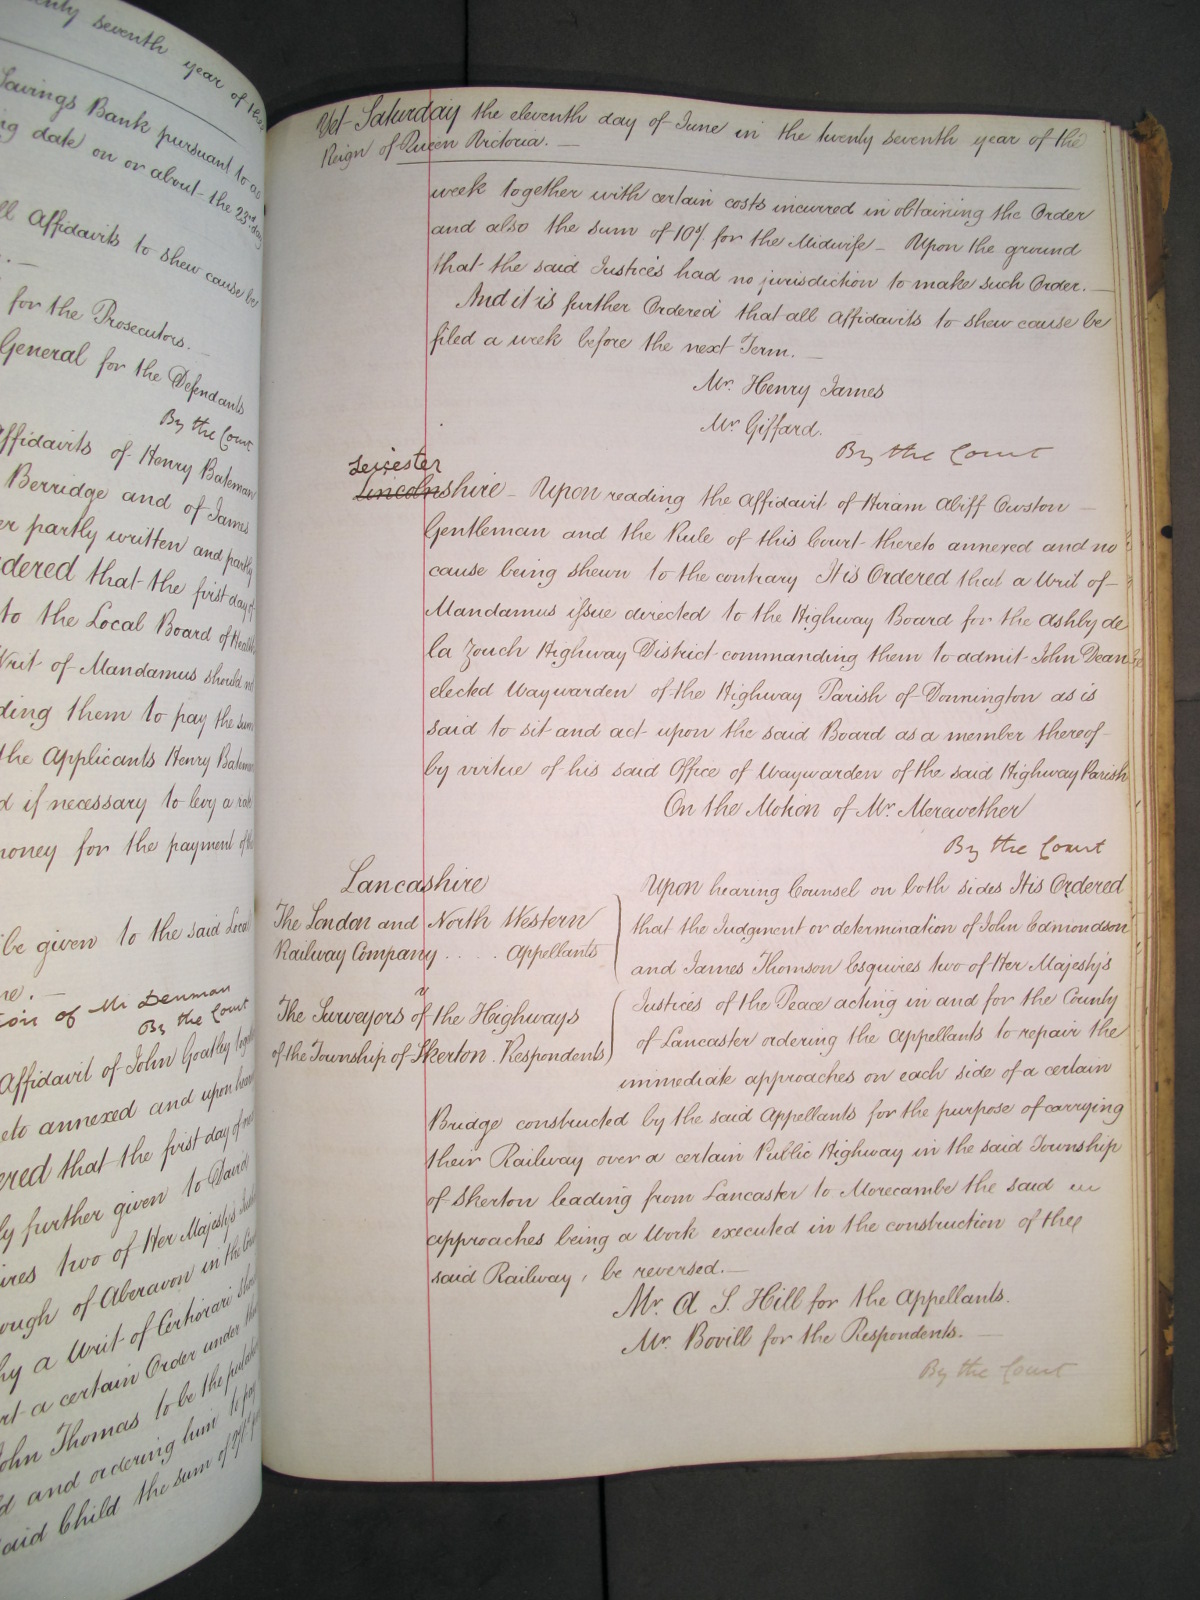 enty seventh year of the
Savings Bank pursuant to an
ng date on or about the 23rd day
ll Affidavits to shew cause be
for the Prosecutors.
General for the Defendants
By the Court
Affidavits of Henry Bateman
Berridge and of James
er partly written and partly
dered that the first day of
to the Local Board of Health
Writ of Mandamus should not
ding them to pay the sum
the Applicants Henry Bateman
d if necessary to levy a rate
money for the payment of the
be given to the said Local
ne. —
tion of Mr Denman
By the Court
Affidavit of John Goatley
eto annexed and upon
ered that the first day of
ly further given to David
ires two of Her Majesty's
ough of Aberavon in the
hy a Writ of Certiorari should
rt a certain Order under the
John Thomas to be the putative
d and ordering him to pay
said Child the sum of
Yet Saturday the eleventh day of June in the twenty seventh year of the
Reign of Queen Victoria. —
week together with certain costs incurred in obtaining the Order
and also the sum of 10/ for the Midwife — Upon the ground
that the said Justices had no jurisdiction to make such Order. —
And it is further Ordered that all Affidavits to shew cause be
filed a week before the next Term. —
Mr. Henry James
Mr Giffard.
By the Court
Leicester
Lincolnshire — Upon reading the Affidavit of Hiram Abiff Owston —
Gentleman and the Rule of this Court thereto annexed and no
cause being shewn to the contrary It is Ordered that a Writ of
Mandamus issue directed to the Highway Board for the Ashby de
la Zouch Highway District commanding them to admit John Dean
elected Waywarden of the Highway Parish of Donnington as is
said to sit and act upon the said Board as a member thereof
by virtue of his said Office of Waywarden of the said Highway Parish
On the Motion of Mr. Merewether
By the Court
Lancashire
The London and North Western
Railway Company . . . . . Appellants
v
The Surveyors of the Highways
of the Township of Skerton. Respondents
Upon hearing Counsel on both sides It is Ordered
that the Judgment or determination of John Edmondson
and James Thomson Esquires two of Her Majesty's
Justices of the Peace acting in and for the County
of Lancaster ordering the Appellants to repair the
immediate approaches on each side of a certain
Bridge constructed by the said Appellants for the purpose of carrying
their Railway over a certain Public Highway in the said Township
of Skerton leading from Lancaster to Morecambe the said
approaches being a Work executed in the construction of the
said Railway, be reversed. —
Mr. A. S. Hill for the Appellants.
Mr. Bovill for the Respondents. —
By the Court